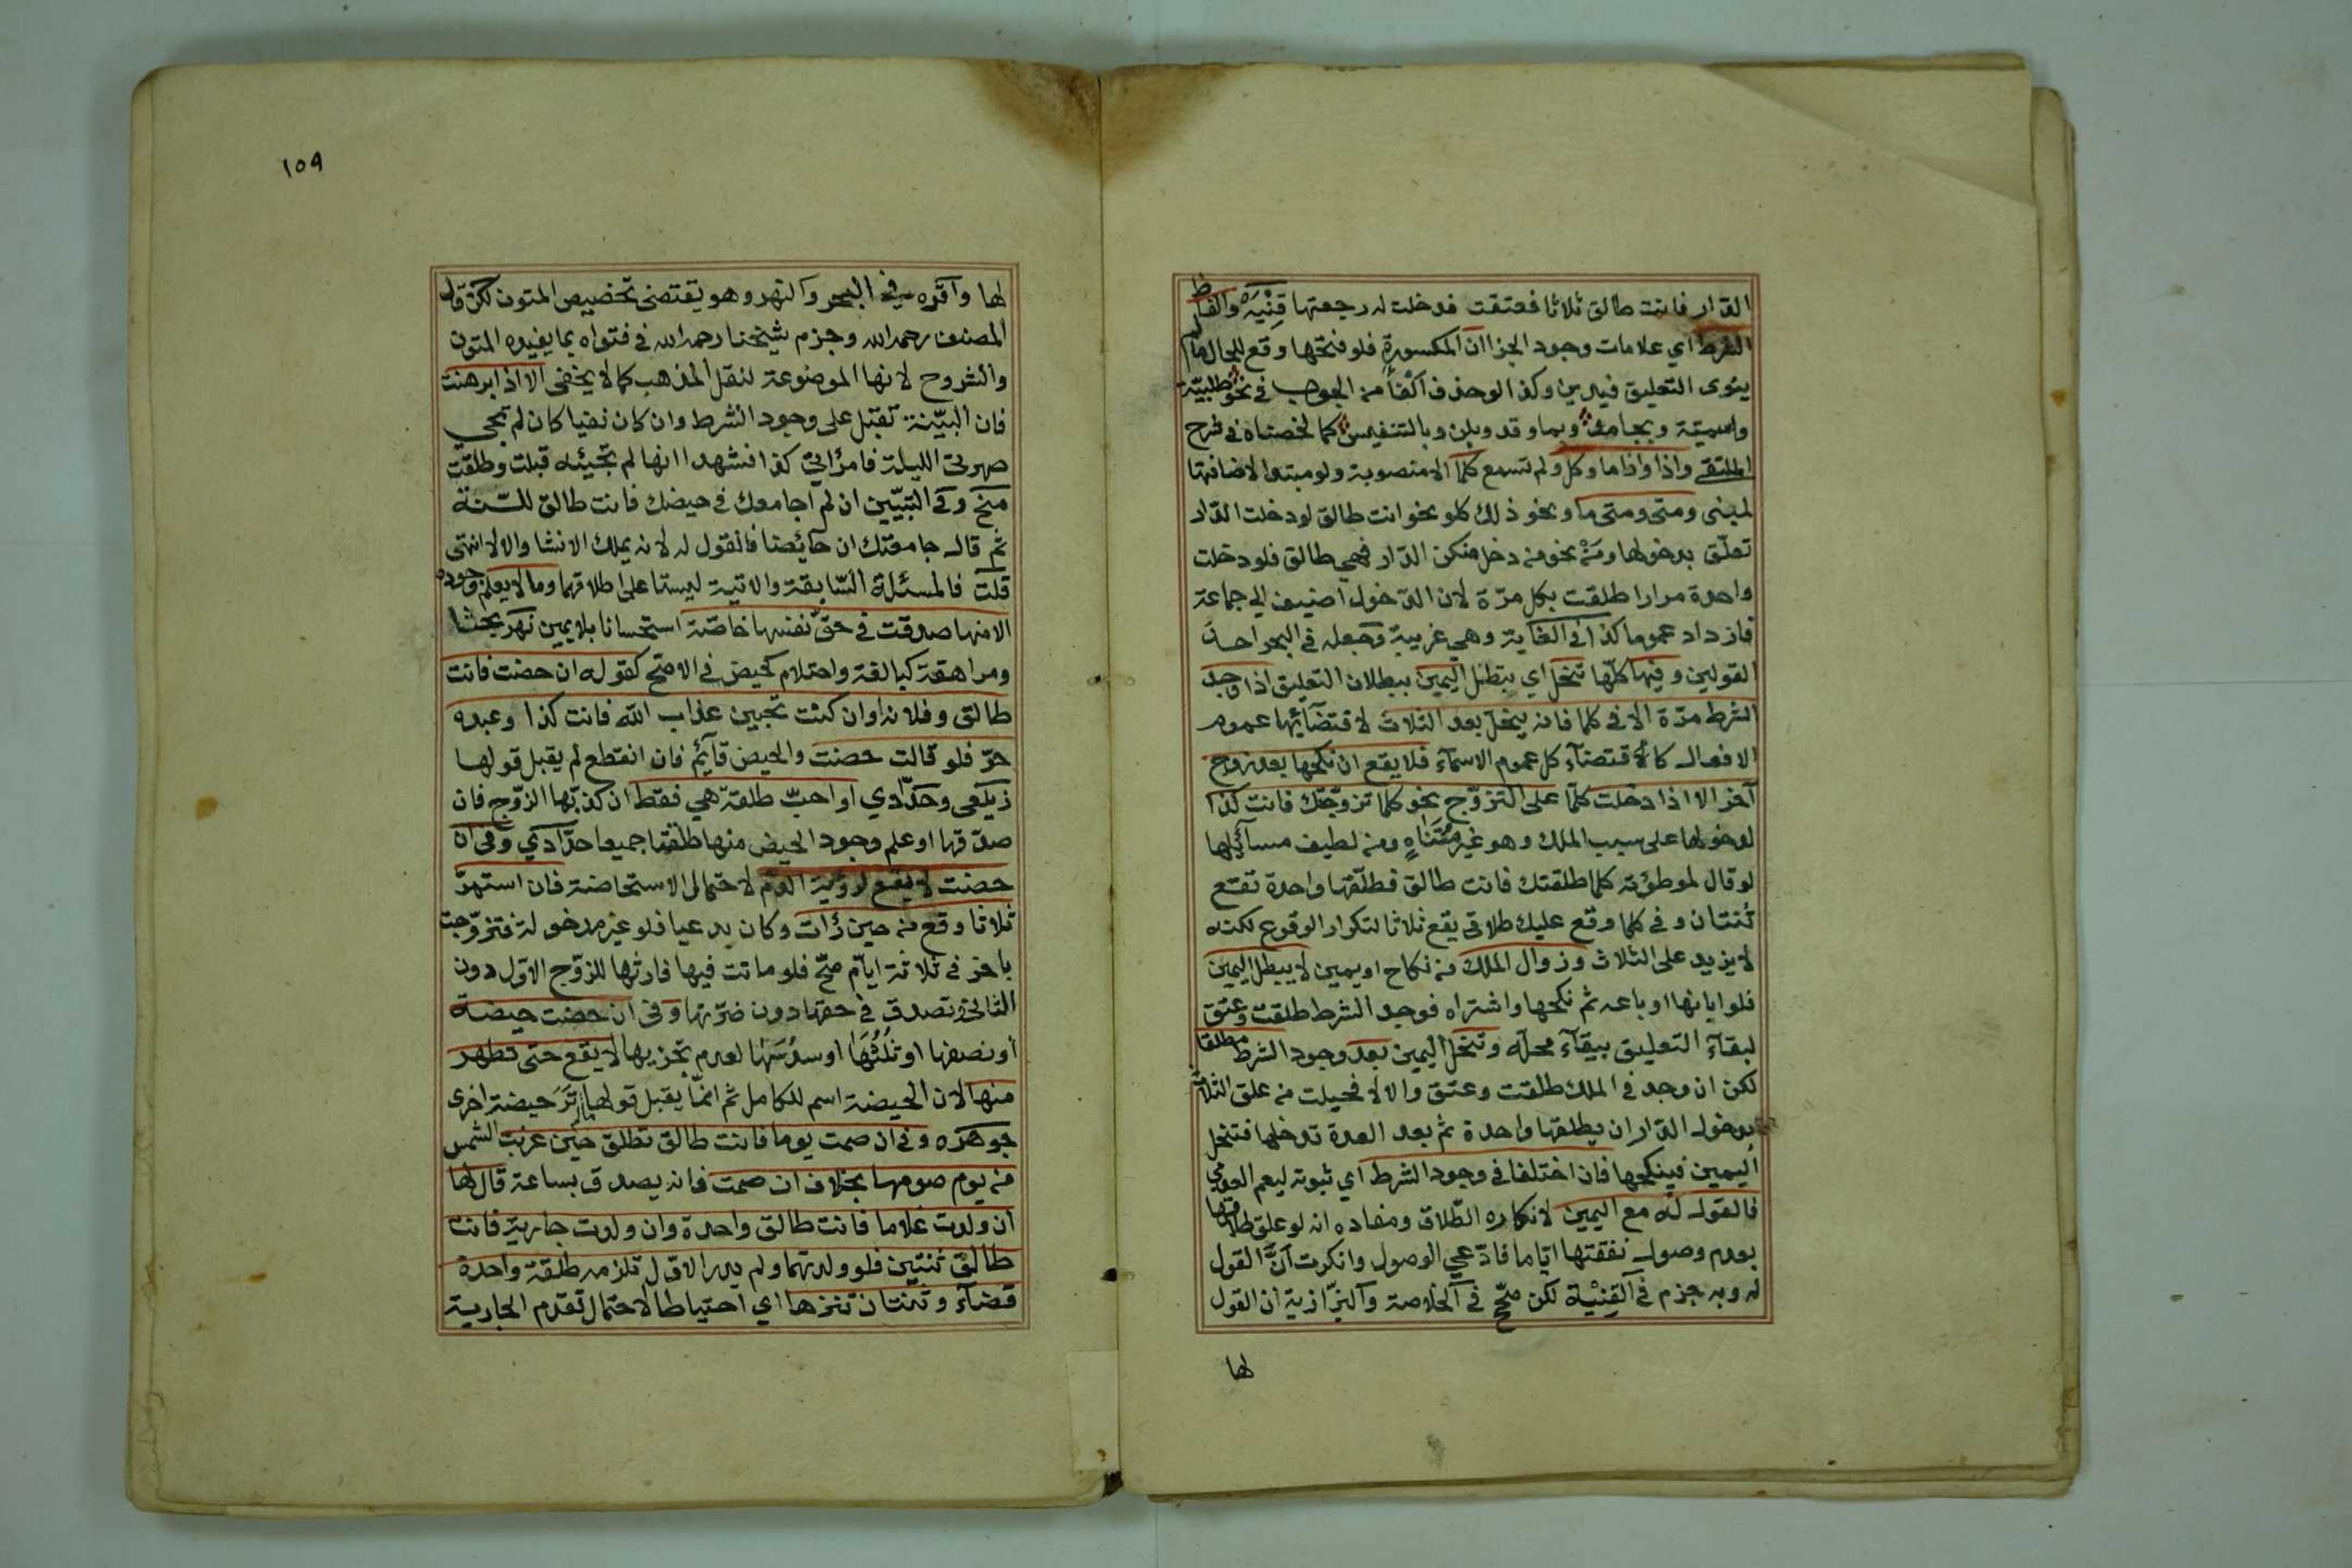 الدار فانت طالق ثلاثا فعتقت فدخلت له رجعتها قِنْيَه والفاظ
الشرط اي علامات وجود الجزا ان المكسورة فلو فتحها وقع للحال مالم
ينوى التعليق فيدين وكذا لو حذف الفاء من الجواب في نحو طلبيّة
واسمية وبجامد وبما وقد وبلن وبالتنفيس كما لخصناه في شرح
الملتقى واذا واذا ما وكل ولم تسمع كلما الا منصوبة ولو مبتدا لاضافتها
لمبنى ومتى ومتى ما ونحو ذلك كلو نحو انت طالق لو دخلت الدار
تعلق بدخولها ومَنْ نحو من دخل منكن الدار فهي طالق فلو دخلت
واحدة مرارا طلقت بكل مرّة لان الدخول اضيف الي جماعة
فازداد عموما كذا في الغاية وهي غريبة وجعله في البحر احد
القولين وفيها كلها تنحل اي تبطل اليمين ببطلان التعليق اذا وجد
الشرط مرّة الا في كلما فانه ينحل بعد الثلاث لاقتضائها عموم
الافعال كاقتضاء كل عموم الاسماء فلا يقع ان نكحها بعد زوج
آخر الا اذا دخلت كلما على التزوّج نحو كلما تزوجتك فانت كذا
لدخولها على سبب الملك وهو غير مُتَنَاهٍ ومن لطيف مسائلها
لو قال لموطؤته كلما طلقتك فانت طالق فطلّقها واحدة تقع
ثنتان وفي كلما وقع عليك طلاقي يقع ثلاثا لتكرار الوقوع لكنه
لا يزيد على الثلاث وزوال الملك من نكاح او يمين لا يبطل اليمين
فلو ابانها او باعه ثم نكحها واشتراه فوجد الشرط طلقت وعتق
لبقاء التعليق ببقاء محله وتنحل اليمين بعد وجود الشرط مطلقا
لكن ان وجد في الملك طلقت وعتق والا لا فحيلت من علق الثلاث
بدخول الدار ان يطلقها واحدة ثم بعد العدة تدخلها فتنحل
اليمين فينكحها فان اختلفا في وجود الشرط اي ثبوته ليعم العدمي
فالقول له مع اليمين لانكاره الطّلاق ومفاده انه لو علق طلاقها
بعدم وصول نفقتها ايّاما فادّعي الوصول وانكرت اَنَّ القول
له وبه جزم في القِنْيَة لكن صحّح في الخلاصة والبزّازية ان القول
لها
١٥٩
لها واقره في البحر والنهر وهو يقتضى تخصيص المتون لكن قال
المصنف رحمه الله وجزم شيخنا رحمه الله في فتواه بما يفيده المتون
والشروح لانها الموضوعة لنقل المذهب كما لا يخفى الا اذا برهنت
فان البيّنة تقبل على وجود الشرط وان كان نفيا كان لم تجي
صهرتي الليلة فامرأتي كذا فشهدا انها لم تجيئه قبلت وطلقت
منح وفي التبيين ان لم اجامعك في حيضك فانت طالق للسّنة
ثم قال جامعتك ان حائضا فالقول له لانه يملك الانشا والا لا انتهى
قلت فالمسئلة السّابقة والاتية ليستا على اطلاقهما وما لا يعلم وجوده
الا منها صدقت في حقّ نفسها خاصّة استحسانا بلا يمين نهر بحثا
ومراهقة كبالغة واحتلام كحيض في الاصح كقوله ان حضت فانت
طالق وفلانه او ان كنت تحبين عذاب الله فانت كذا وعبده
حرّ فلو قالت حضت والحيض قائم فان انقطع لم يقبل قولها
زيلعي وحدّادي او احبّ طلقت هي فقط ان كذبها الزوج فان
صدّقها او علم وجود الحيض منها طلقتا جميعا حدّادي وفي ان
حضت لا يقع لرؤية الدم لاحتمال الاستحاضة فان استمرّ
ثلاثا وقع من حين رات وكان بدعيا فلو غير مدخولة فتزوّجت
باخر في ثلاثة ايام صحّ فلو ماتت فيها فارثها للزوج الاوّل دون
الثاني وتصدق في حقها دون ضرّتها وفي ان حضت حيضة
او نصفها او ثُلُثُها او سدُسَها لعدم تجزيها لا يقع حتى تطهر
منها لان الحيضة اسم للكامل ثم انمّا يقبل قولها تَرَ حيضة اخرى
جوهره وفي ان صمت يوما فانت طالق تطلق حين غربت الشمس
من يوم صومها بخلاف ان صمت فانه يصدق بساعة قال لها
ان ولدت غلاما فانت طالق واحدة وان ولدت جارية فانت
طالق ثنتين فلو ولدتهما ولم يدر الاوّل تلزمه طلقة واحدة
قضاء وثنتان تنزها اي احتياطا لاحتمال تقدم الجارية